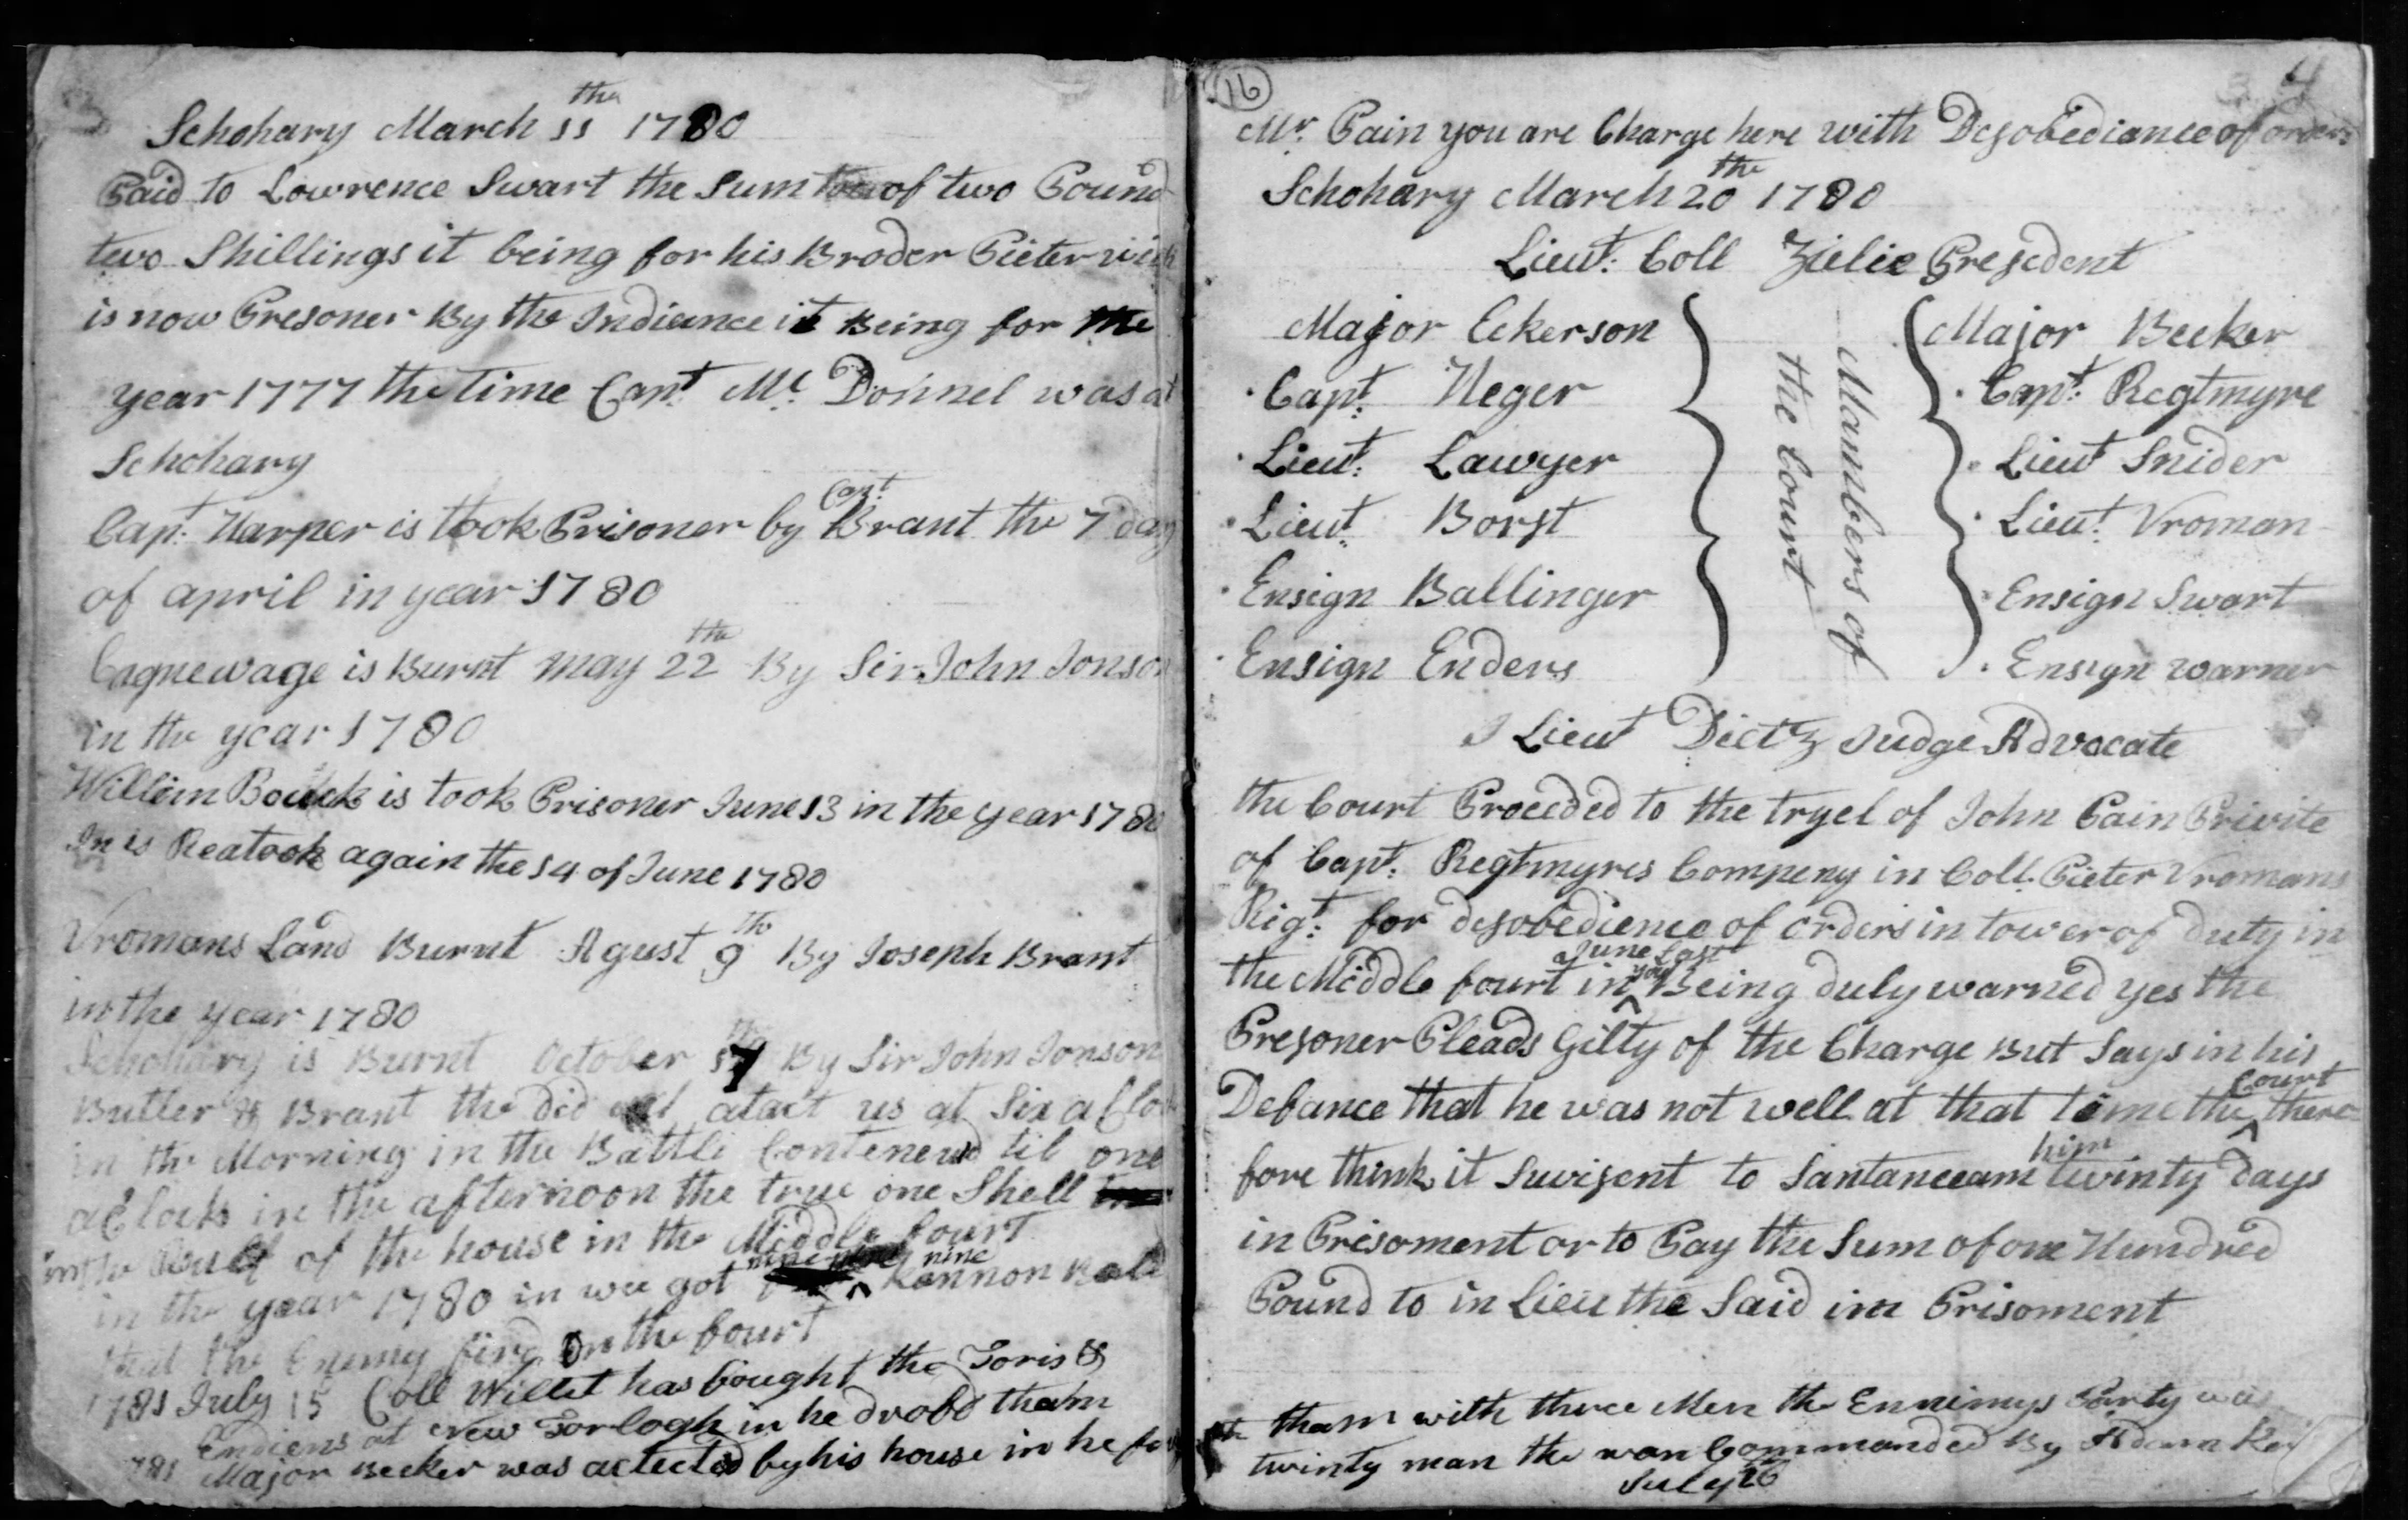 Schohary March 11th 1780
Paid to Lowrence Swart the Sum of two Pound
two Shillings it being for his Broder Pieter
is now Presoner By the Indience it Being for the
year 1777 the time Capt. Mc. Donnel was at
Schohary
Capt. Harper is took Prisoner by Capt. Brant the 7 day
of april in year 1780
Cagnewage is Burnt may 22th By Sir John Jonson
in the year 1780
Willem Bouck is took Prisoner June 13 in the year 1780
In is Reatook again the 14 of June 1780
Vromans Land Burnt Agust 9th By Joseph Brant
in the year 1780
Schohary is Burnt October 17 By Sir John Jonson
Butler & Brant the did atact us at Six a Clock
in the Morning in the Battle Contenewd til one
a Clock in the afternoon the true one Shell
in the of the house in the Middle fourt
in the year 1780 in wee got nine Kannon Ball
that the Enemy fird On the fourt
1781 July 15 Coll Willet has fought the Toris &
Endiens at New Torlogh in he drobe tham
1781 Major Becker was actected by his house in he
16
4
Mr. Pain you are Charge here with Desobediance of orders
Schohary March 20the 1780
Lieut. Coll Zielie Presedent
Major Eckerson
Capt. Heger
Lieut. Lawyer
Lieut. Borst
Ensign Ballinger
Ensign Enders
Mannbers of
the Court
Major Becker
Capt. Regtmyre
Lieut Snider
Lieut. Vroman
Ensign Swart
Ensign Warner
Lieut Dietz Judge Advocate
the Court Proceded to the tryel of John Pain Privite
of Capt. Regtmyres Compeny in Coll. Pieter Vromans
Rigt. for desobedience of orders in tower of duty in
the Middle fourt in June Last you Being duly warned yes the
Presoner Pleads Gilty of the Charge But Says in his
Defance that he was not well at that time the Court there
fore think it Suvisent to Santanceam him twinty days
in Prisoment or to Pay the Sum of one Hundred
Pound to in Lieu the Said im Prisoment
tham with three Men the Ennimys Party was
twinty man the wan Commanded By Adam
July 26